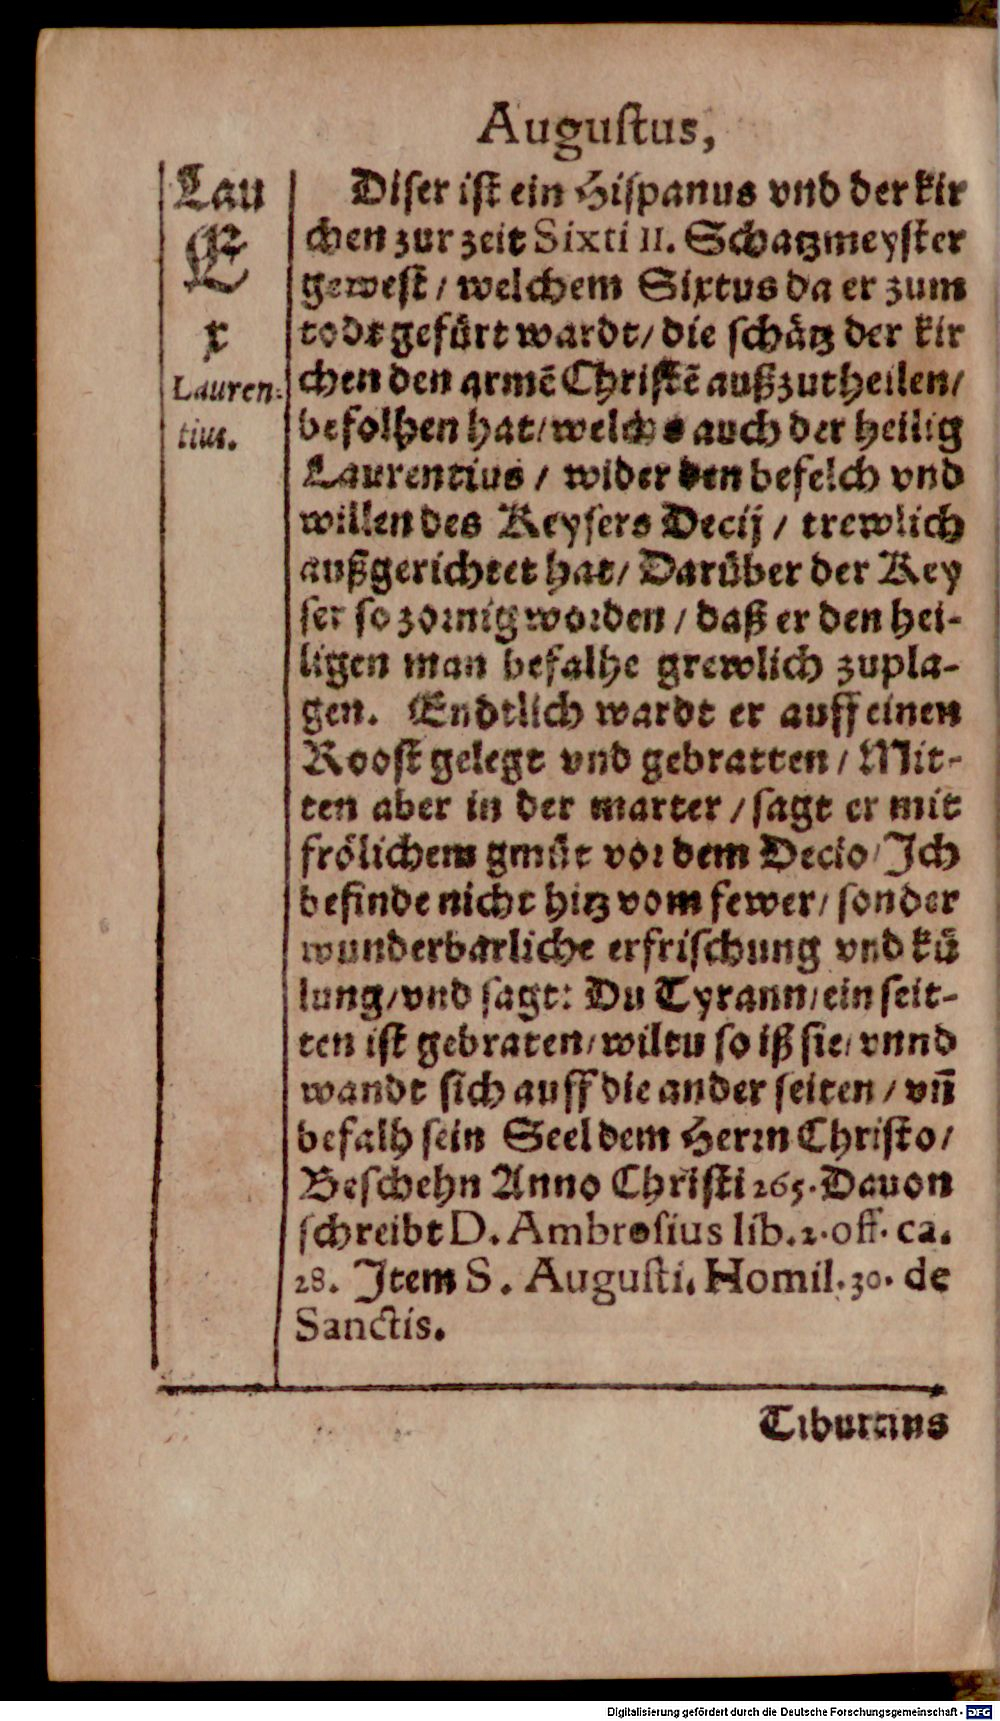 Augustus,
Lau
E
x
Lauren-
tius.
Diser ist ein Hispanus vnd der kir
chen zur zeit Sixti II. Schatzmeyster
gewest / welchem Sixtus da er zum
todt gefürt wardt / die schätz der kir
chen den armē Christē außzutheilen /
befolhen hat / welchs auch der heilig
Laurentius / wider den befelch vnd
willen des Keysers Decij / trewlich
außgerichtet hat / Darüber der Key
ser so zornig worden / daß er den hei-
ligen man befalhe grewlich zupla-
gen. Endtlich wardt er auff einen
Roost gelegt vnd gebratten / Mit-
ten aber in der marter / sagt er mit
frölichem gmüt vor dem Decio / Ich
befinde nicht hitz vom fewer / sonder
wunderbarliche erfrischung vnd kü
lung / vnd sagt: Du Tyrann / ein seit-
ten ist gebraten / wiltu so iß sie / vnnd
wandt sich auff die ander seiten / vn̄
befalh sein Seel dem Herrn Christo /
Beschehn Anno Christi 265. Dauon
schreibt D. Ambrosius lib. 2. off. ca.
28. Item S. Augusti. Homil. 30. de
Sanctis.
Tiburtius
Digitalisierung gefördert durch die Deutsche Forschungsgemeinschaft - DFG